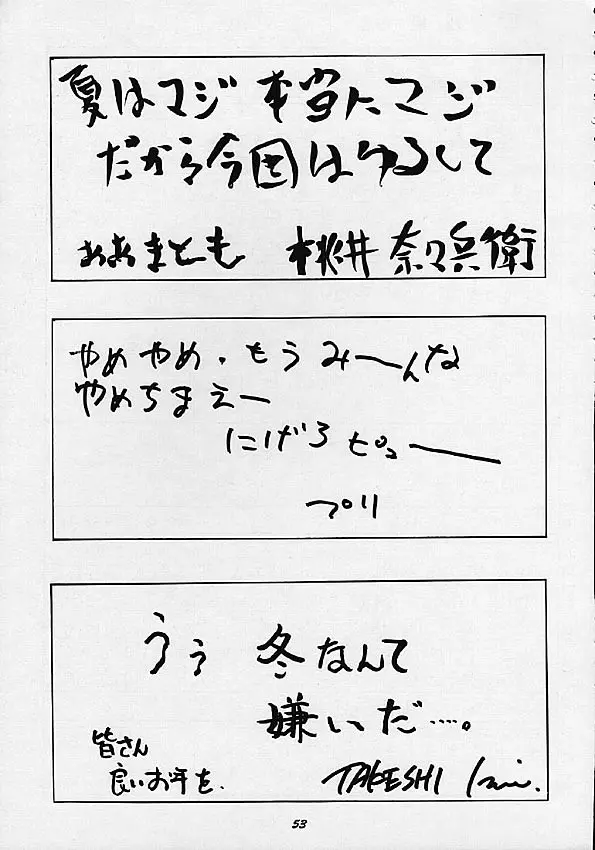 夏はマジ 本当にマジ
だから今回はゆるして
おおまとも 桃井 奈々兵衛
やめやめ、もうみ〜んな
やめちまえー
にげろ ピュー
プリ
うぅ 冬なんて
嫌いだ……。
皆さん
良いお年を.
TAKESHI
53